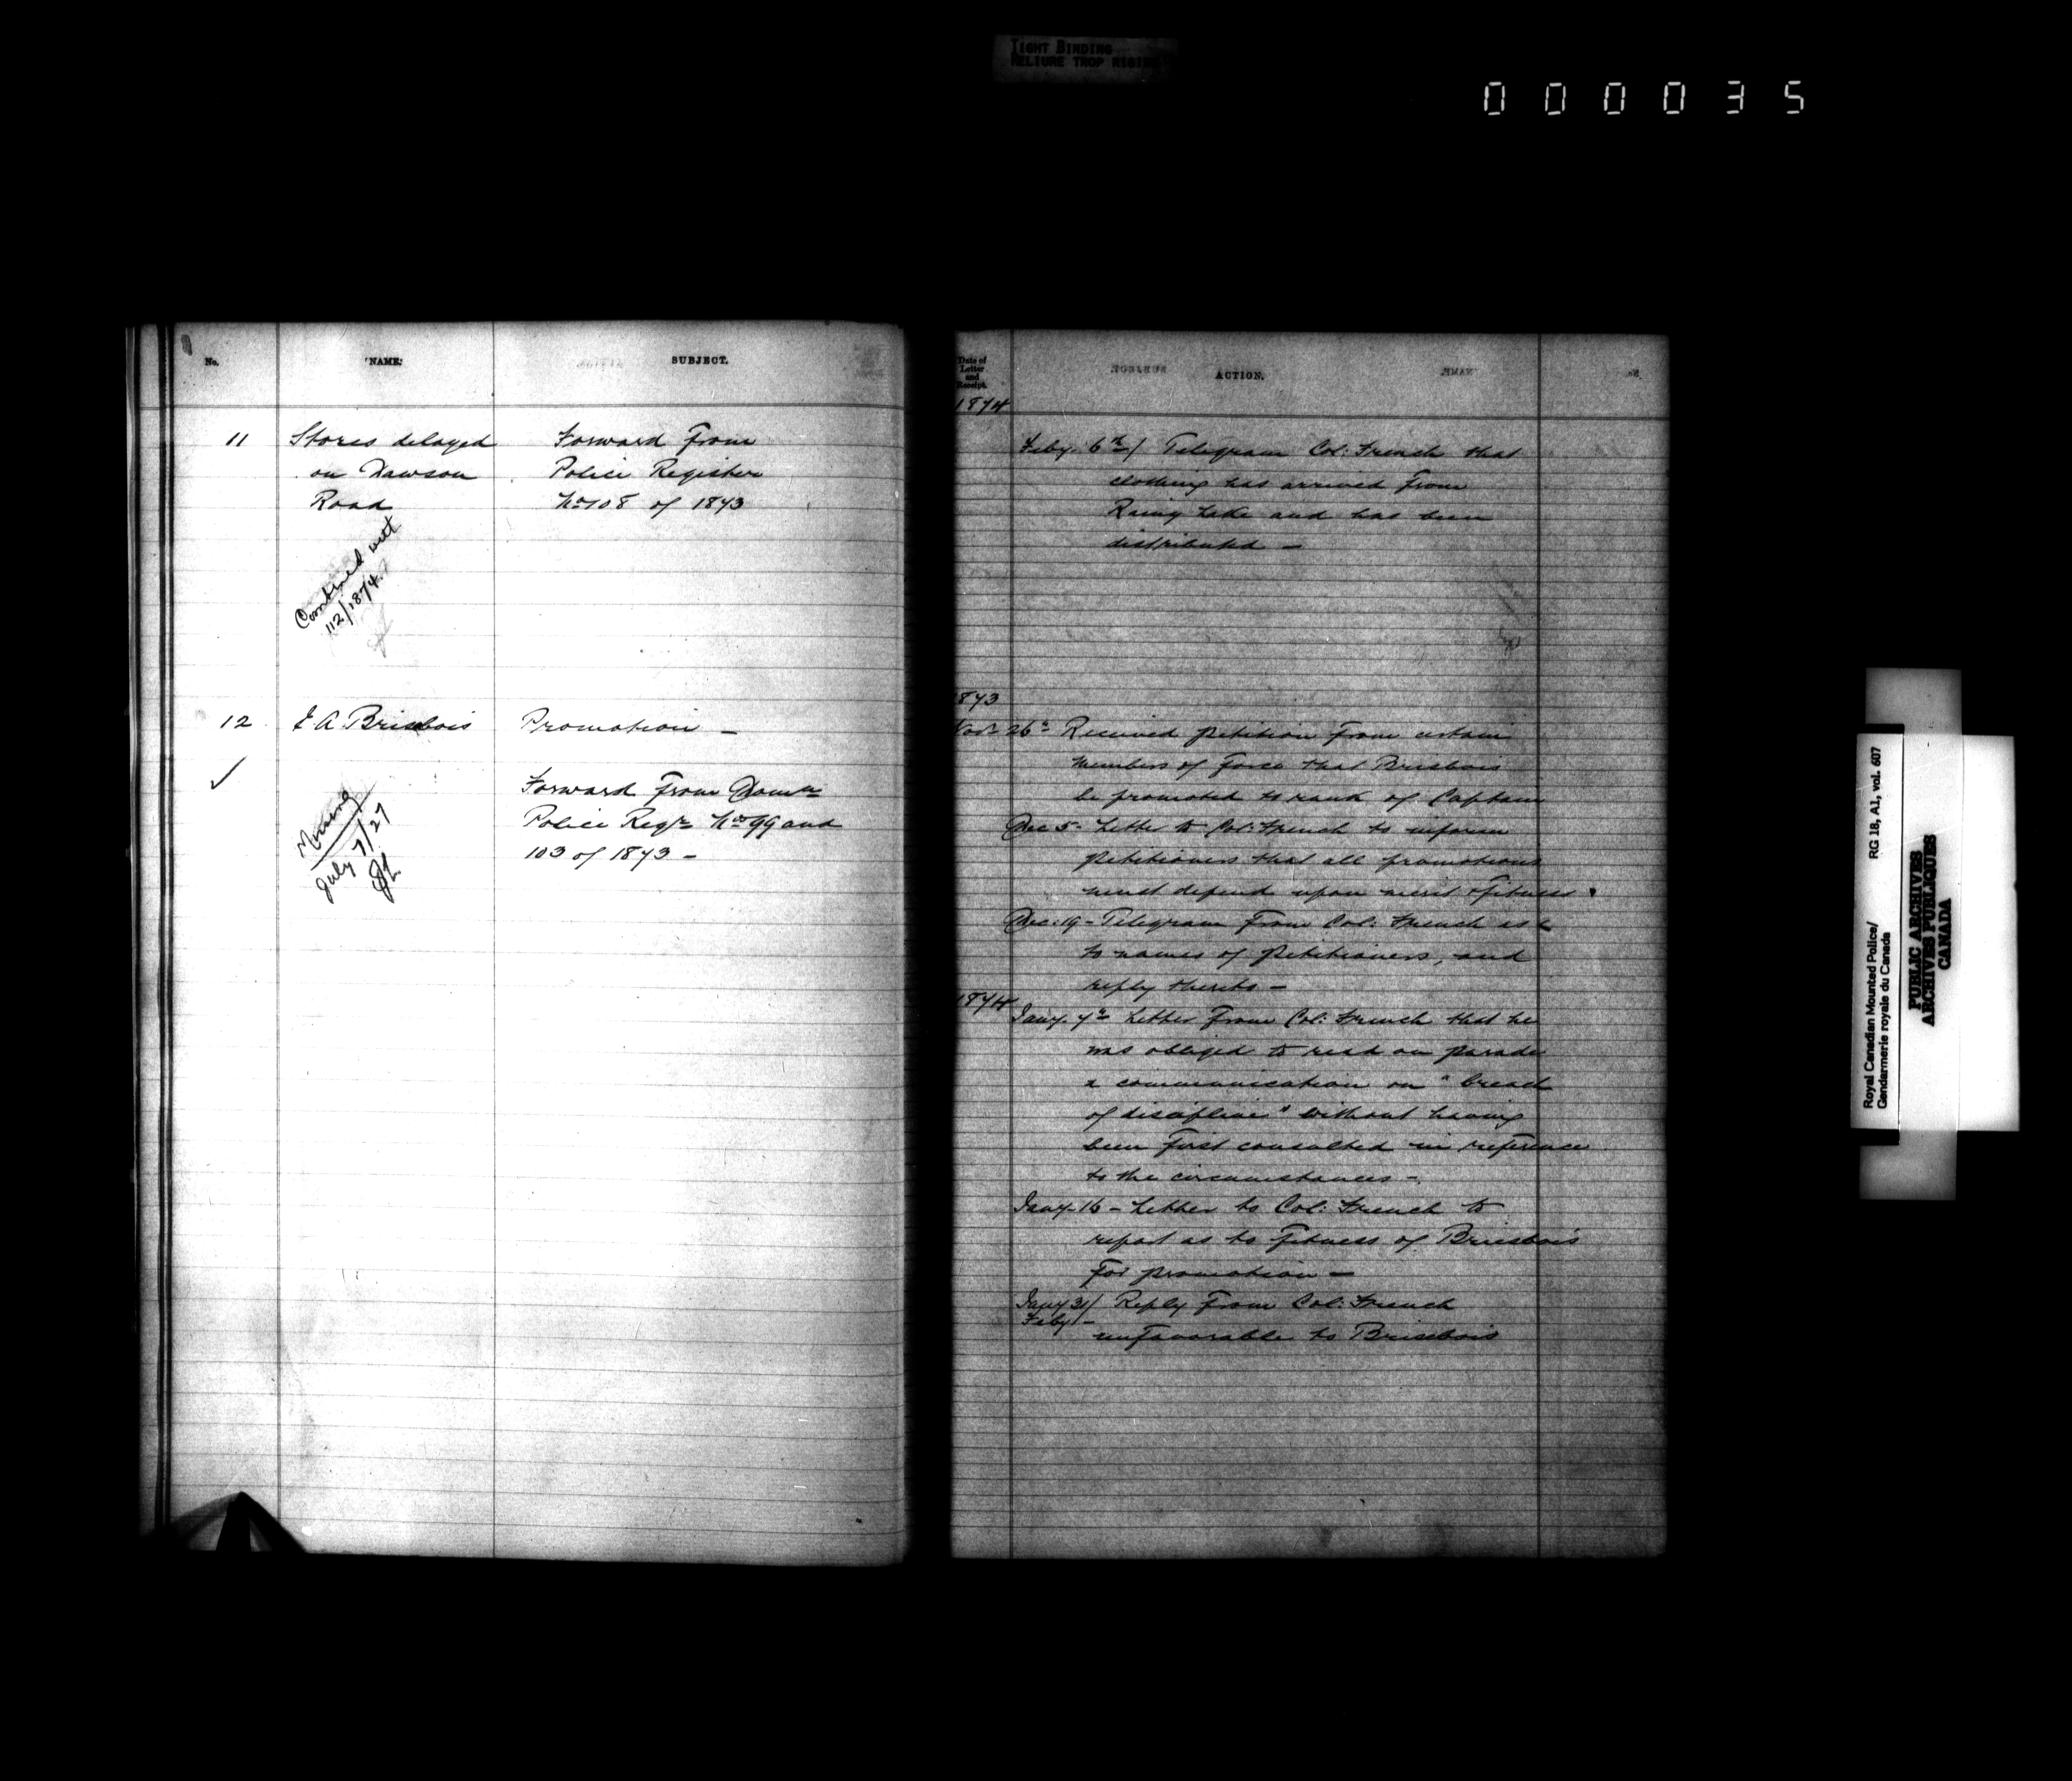 TIGHT BINDING
RELIURE TROP RIGIDE
000035
No. NAME. SUBJECT.
11 Stores delayed Forward from
on Dawson Police Register
Road No 108 of 1873
Combined with
112/1874.
12 E A Brisebois Promotion —
✓
Forward from Domn
Police Regr Nos 99 and
103 of 1873 —
Missing
July 7/27
Date of
Letter
and
Receipt.
ACTION.
1874
Feby. 6th/ Telegram Col: French that
clothing has arrived from
Rainy Lake and has been
distributed —
1873
Novr 26th Received petition from certain
members of force that Brisbois
be promoted to rank of Captain
Dec 5 - Letter to Col: French to inform
petitioners that all promotions
must depend upon merit & fitness.
Dec: 19 - Telegram from Col: French as
to names of petitioners, and
reply thereto —
1874
Jany. 7th Letter from Col: French that he
was obliged to read on parade
a communication on "breach
of discipline" without having
been first consulted in reference
to the circumstances —
Jany. 16 — Letter to Col: French to
report as to fitness of Brisebois
for promotion —
Jany 31/ Reply from Col: French
Feby 1 —
unfavorable to Brisebois
Royal Canadian Mounted Police/
Gendarmerie royale du Canada
RG 18, A1, vol. 607
PUBLIC ARCHIVES
ARCHIVES PUBLIQUES
CANADA